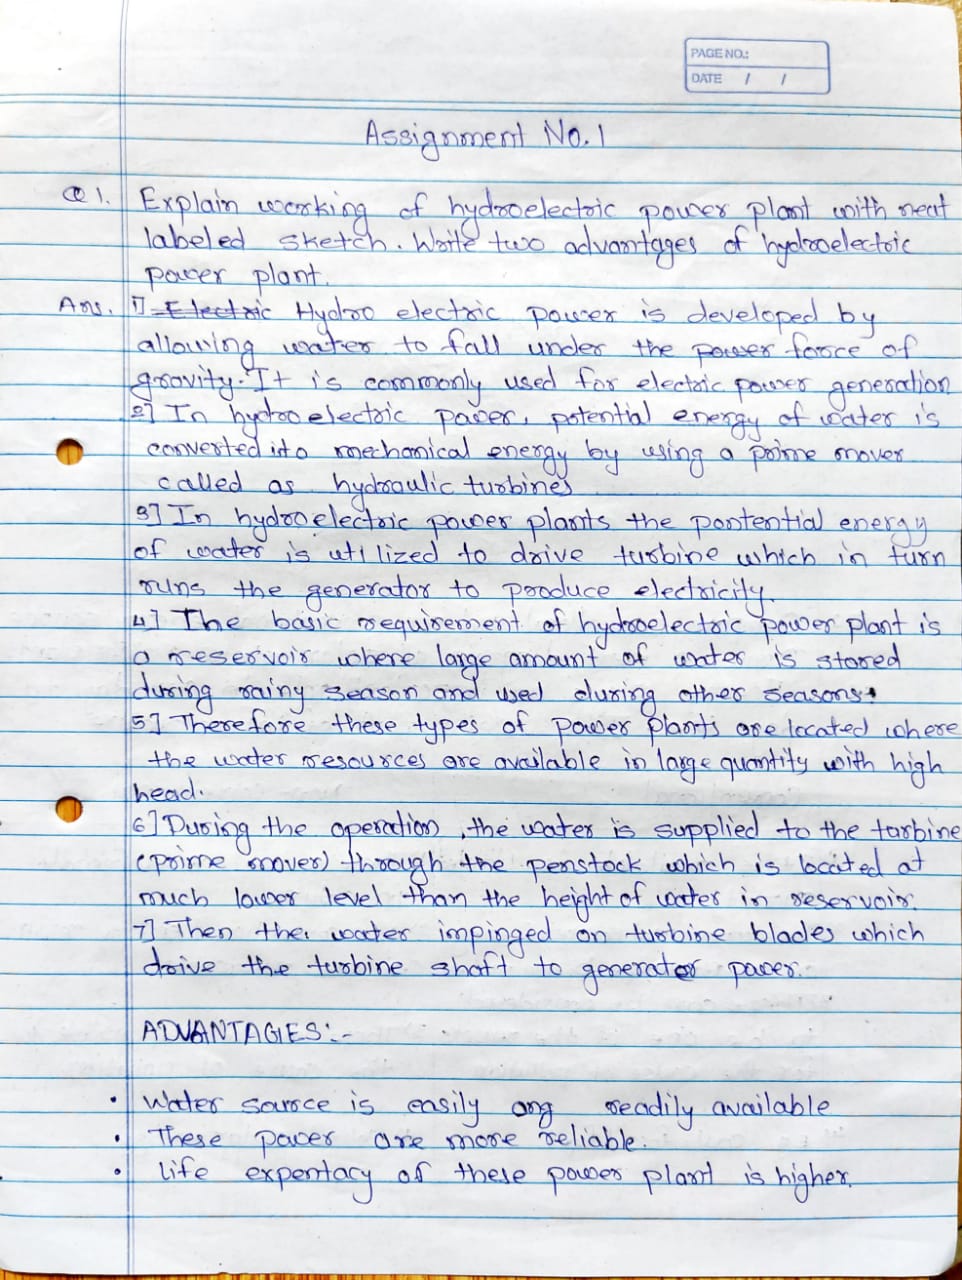 PAGE NO.:
DATE / /
Assignment No. 1
Q 1. Explain working of hydroelectric power plant with neat
labeled sketch. Write two advantages of hydroelectric
power plant.
Ans. 1] Electric Hydro electric power is developed by
allowing water to fall under the power force of
gravity. It is commonly used for electric power generation
2] In hydro electric power, potential energy of water is
converted into mechanical energy by using a prime mover
called as hydraulic turbines
3] In hydro electric power plants the pontential energy
of water is utilized to drive turbine which in turn
runs the generator to produce electricity.
4] The basic requirement of hydroelectric power plant is
a reservoir where large amount of water is stored
during rainy season and used during other seasons.
5] Therefore these types of power plants are located where
the water resources are available in large quantity with high
head.
6] During the operation, the water is supplied to the turbine
(prime mover) through the penstock which is located at
much lower level than the height of water in reservoir.
7] Then the water impinged on turbine blades which
drive the turbine shaft to generator power.
ADVANTAGES:-
• Water source is easily ang readily available
• These power are more reliable.
• life expentacy of these power plant is higher.